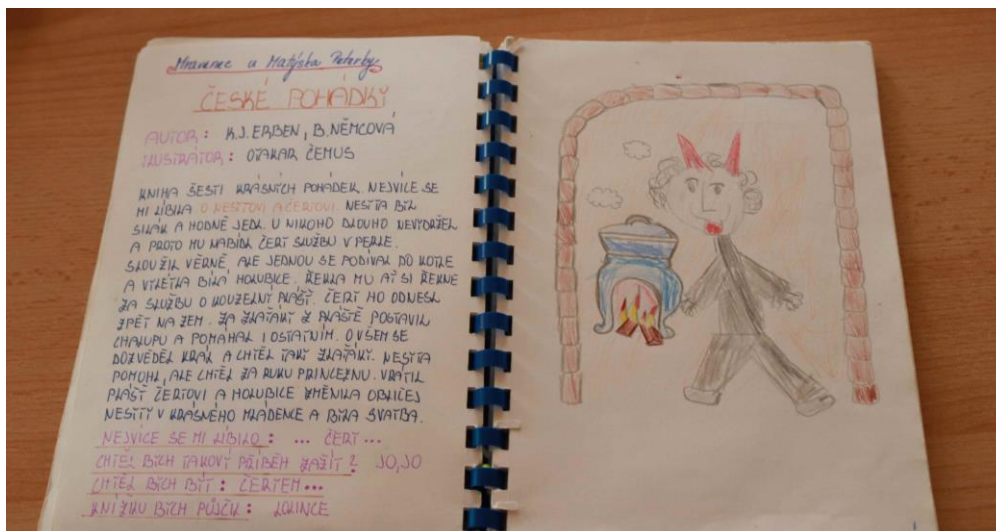 Mravenec u Matýska
ČESKÉ POHÁDKY
AUTOR: K.J. ERBEN, B. NĚMCOVÁ
ILUSTRÁTOR: OTAKAR ČEMUS
KNIHA ŠESTI KRÁSNÝCH POHÁDEK. NEJVÍCE SE
MI LÍBILA O NESYTOVI A ČERTOVI. NESYTA BYL
SILÁK A HODNĚ JEDL. U NIKOHO DLOUHO NEVYDRŽEL
A PROTO MU NABÍDL ČERT SLUŽBU V PEKLE.
SLOUŽIL VĚRNĚ, ALE JEDNOU SE PODÍVAL DO KOTLE
A VYLÉTLA BÍLÁ HOLUBICE. ŘEKLA MU AŤ SI ŘEKNE
ZA SLUŽBU O KOUZELNÝ PLÁŠŤ. ČERT HO ODNESL
ZPĚT NA ZEM. ZA ZLAŤÁKY Z PLÁŠTĚ POSTAVIL
CHALUPU A POMÁHAL I OSTATNÍM. O VŠEM SE
DOZVĚDĚL KRÁL A CHTĚL TAKY ZLAŤÁKY. NESYTA
POMOHL, ALE CHTĚL ZA RUKU PRINCEZNU. VRÁTIL
PLÁŠŤ ČERTOVI A HOLUBICE ZMĚNILA OBLIČEJ
NESYTY V KRÁSNÉHO MLÁDENCE A BYLA SVATBA.
NEJVÍCE SE MI LÍBILO: ... ČERT...
CHTĚL BYCH TAKOVÝ PŘÍBĚH ZAŽÍT? JO, JO
CHTĚL BYCH BÝT: ČERTEM...
KNÍŽKU BYCH PŮJČIL: LOLINCE